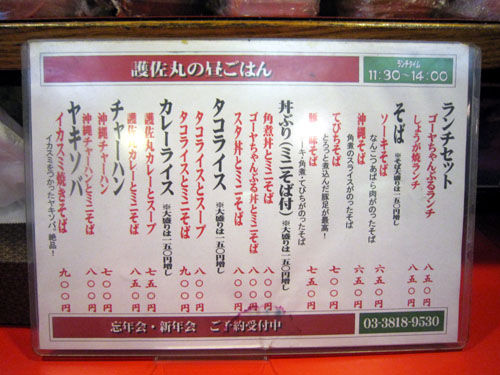 護佐丸の昼ごはん
ランチタイム
11:30～14:00
ランチセット
ゴーヤちゃんぷるランチ 八五〇円
しょうが焼ランチ 八五〇円
そば ※そば大盛りは一五〇円増し
ソーキそば 八五〇円
なんこつあばら肉がのったそば
沖縄そば 六五〇円
角煮のスライスがのったそば
てびちそば 八〇〇円
とろっと煮込んだ豚足が最高!
そば 七五〇円
ーキ・角煮・てびちがのったそば
丼ぶり(ミニそば付) ※大盛りは一五〇円増し
角煮丼とミニそば 八〇〇円
ゴーヤちゃんぷる丼とミニそば 八〇〇円
スタ丼とミニそば 八五〇円
タコライス ※大盛りは一五〇円増し
タコライスとスープ 八〇〇円
タコライスとミニそば 九〇〇円
カレーライス ※大盛りは一五〇円増し
護佐丸カレーとスープ 七五〇円
護佐丸カレーとミニそば 八五〇円
チャーハン
沖縄チャーハン 七〇〇円
沖縄チャーハンとミニそば 八〇〇円
ヤキソバ
イカスミ焼きそば 九〇〇円
イカスミをつかったヤキソバ。絶品!
忘年会・新年会 ご予約受付中
03-3818-9530